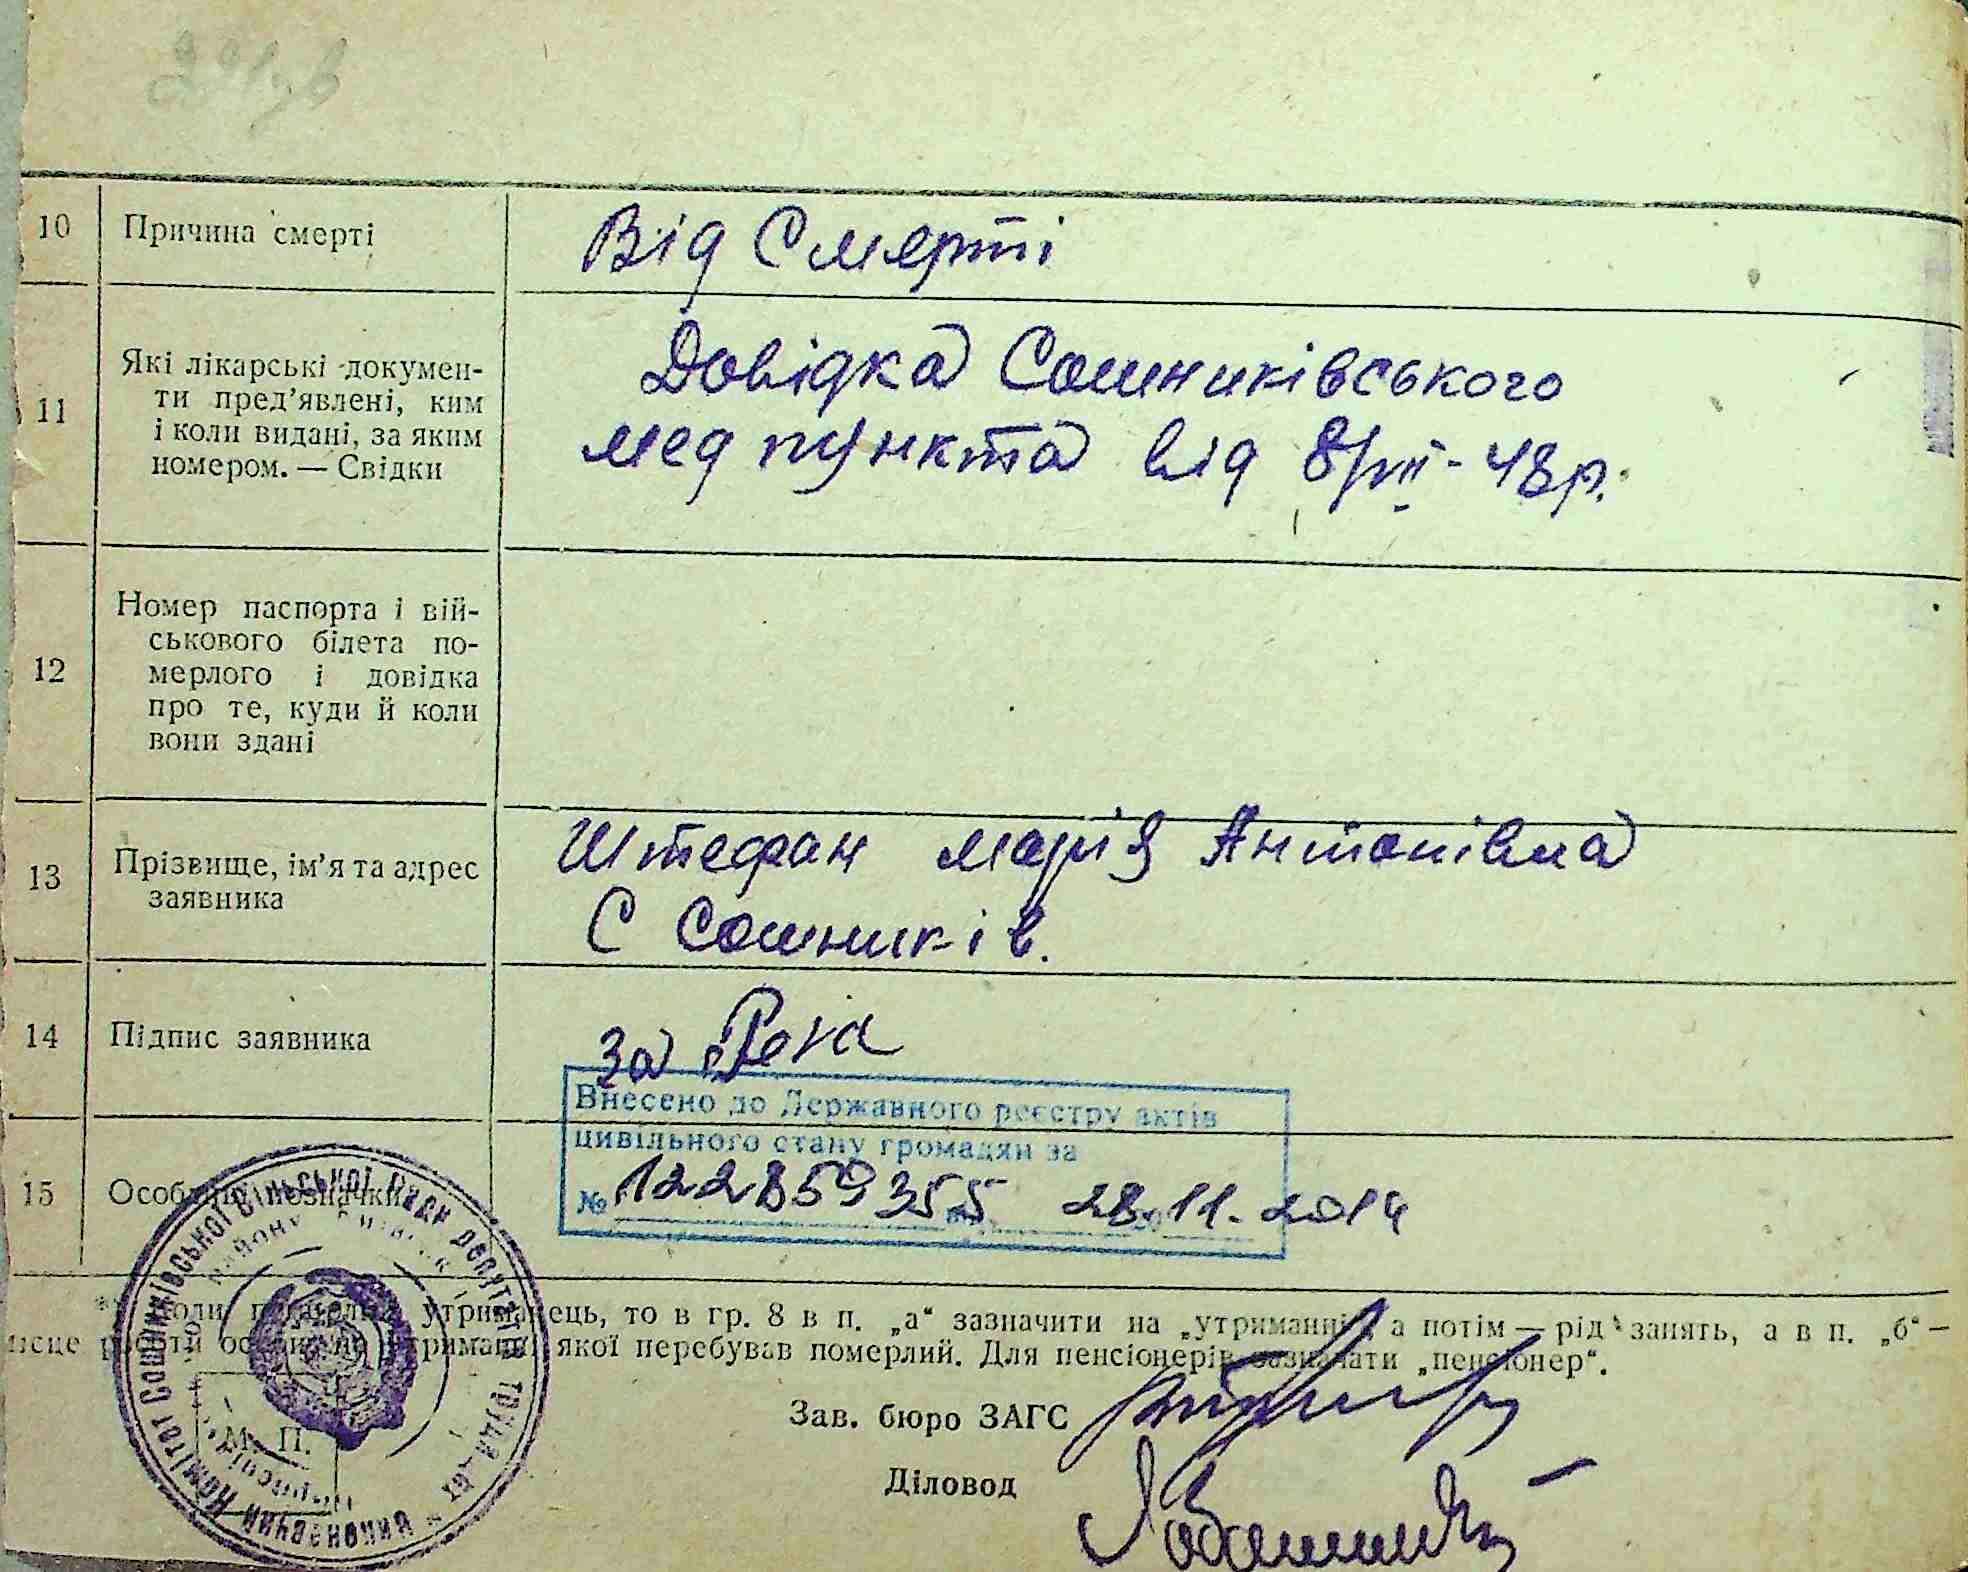 10 Причина смерті
Від Смерті
11 Які лікарські докумен-
ти пред’явлені, ким
і коли видані, за яким
номером. — Свідки
Довідка Сошниківського
мед пункта від 8/VII - 48 р.
12 Номер паспорта і вій-
ськового білета по-
мерлого і довідка
про те, куди й коли
вони здані
13 Прізвище, ім’я та адрес
заявника
Штефан Марія Антонівна
С Сошників.
14 Підпис заявника
за
Внесено до Державного реєстру актів
цивільного стану громадян за
№ 122859355 28.11.2014
15 Особливі позначки
утриманець, то в гр. 8 в п. „а“ зазначити на „утриманні“, а потім — рід занять, а в п. „б“ —
якої перебував померлий. Для пенсіонерів зазначати „пенсіонер“.
М. П.
Зав. бюро ЗАГС
Діловод
Виконавчий Комітет Сошниківської сільської Ради депутатів трудящих